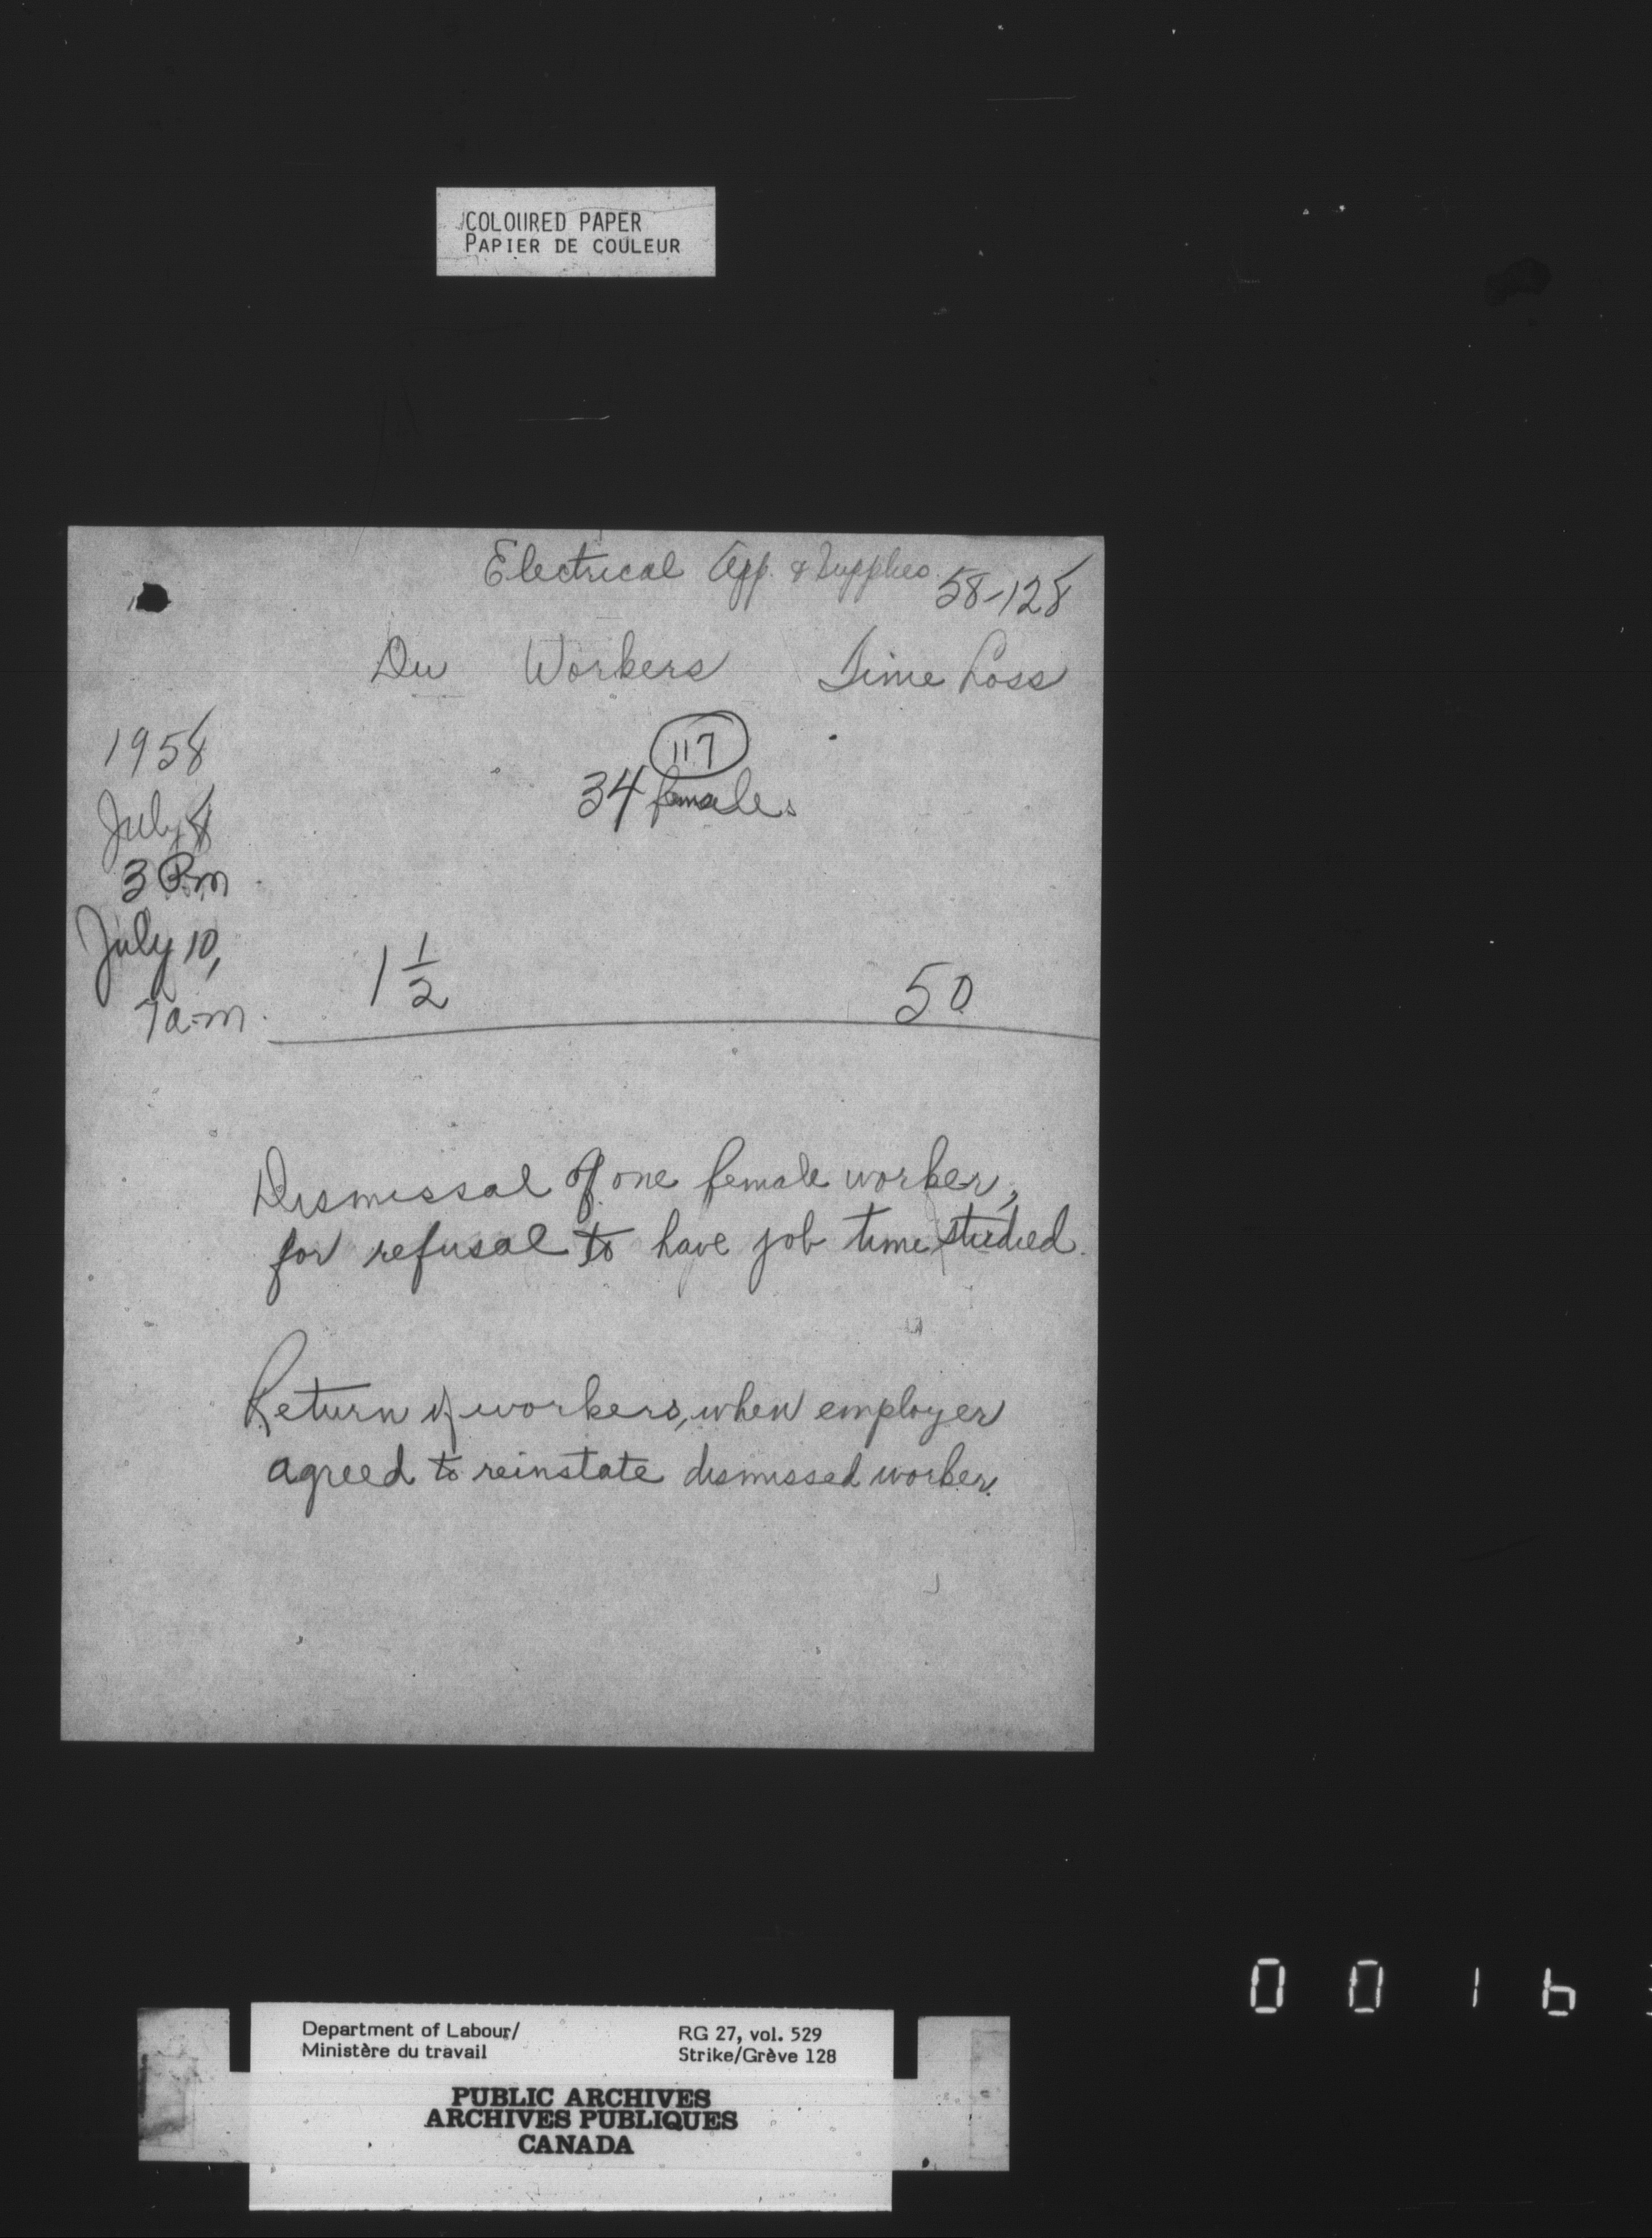 COLOURED PAPER
PAPIER DE COULEUR
Electrical App. & Supplies
58-128
Du Workers Time Loss
1958
117
34 females
July 8
3 P.m
July 10,
7 a.m.
1 1/2 50
Dismissal of one female worker,
for refusal to have job time studied.
Return of workers, when employer
agreed to reinstate dismissed worker.
0 0 1 6
Department of Labour/ RG 27, vol. 529
Ministère du travail Strike/Grève 128
PUBLIC ARCHIVES
ARCHIVES PUBLIQUES
CANADA